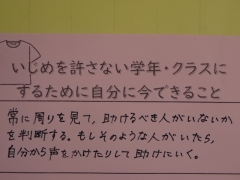 いじめを許さない学年・クラスに
するために自分に今できること
常に周りを見て、助けるべき人がいないか
を判断する。もしそのような人がいたら、
自分から声をかけたりして助けにいく。